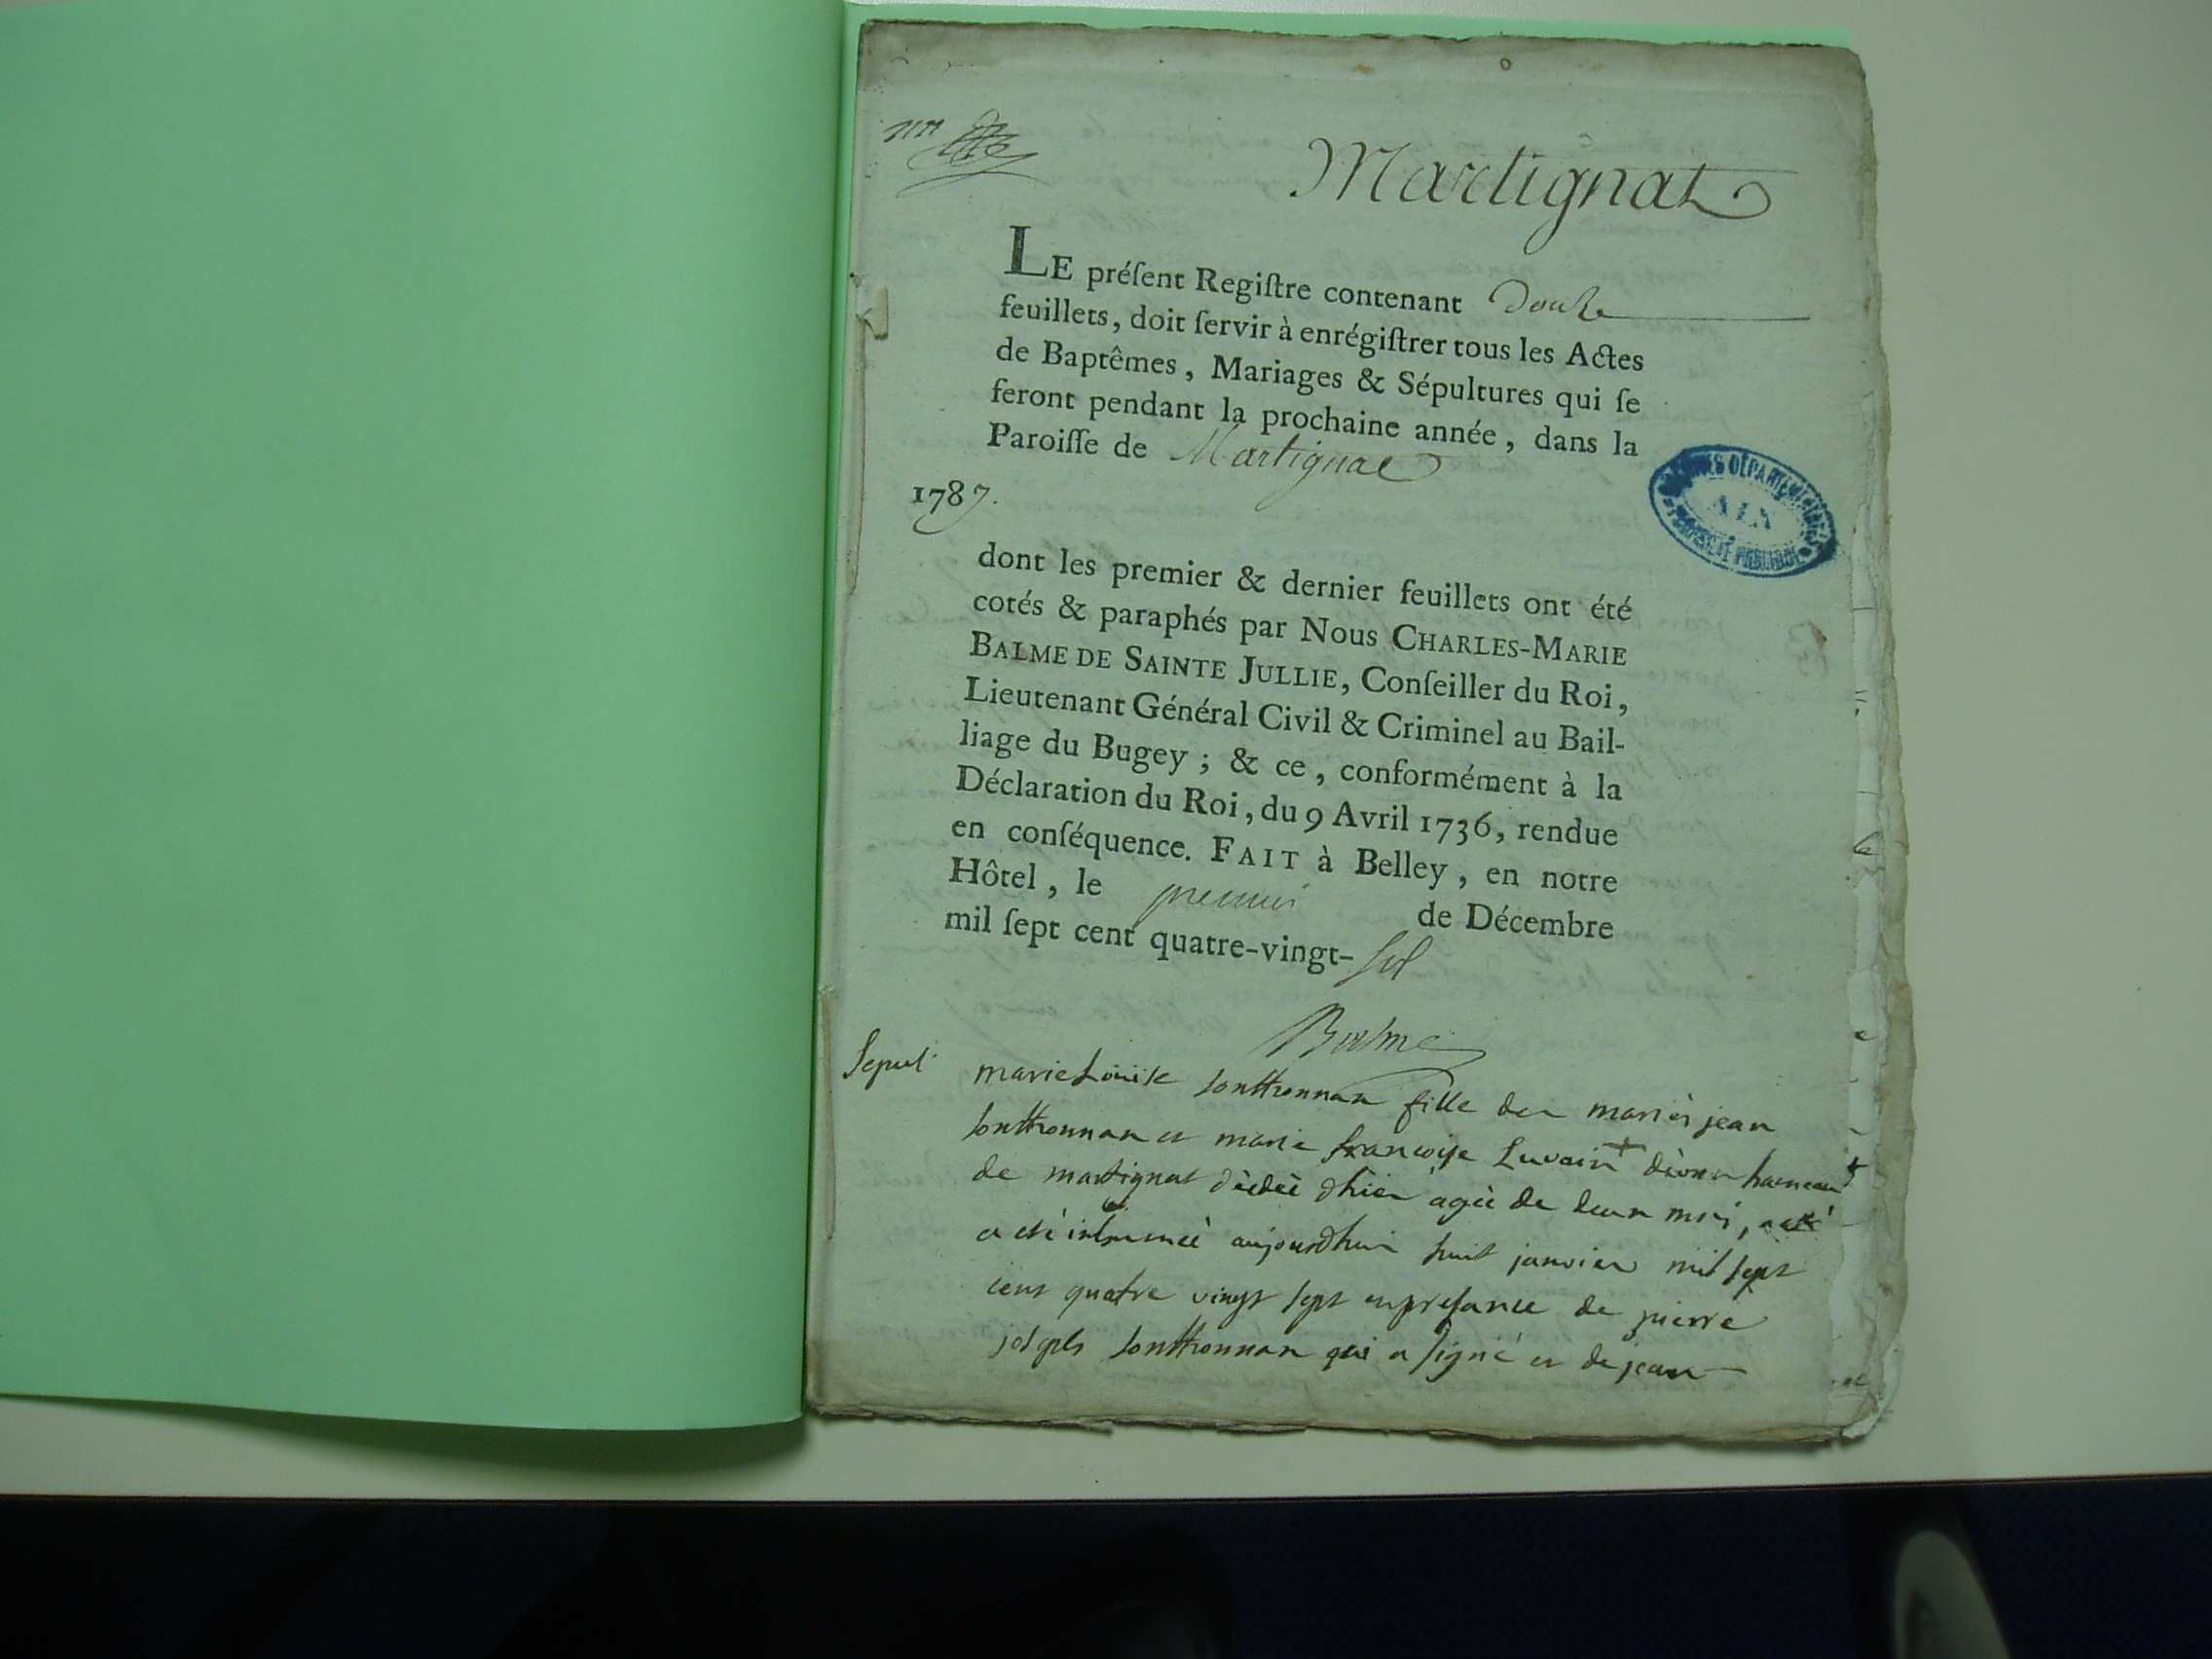 Martignat
LE préſent Regiſtre contenant douze
feuillets, doit ſervir à enrégiſtrer tous les Actes
de Baptêmes, Mariages & Sépultures qui ſe
feront pendant la prochaine année, dans la
Paroiſſe de Martignat
1787.
ARCHIVES DÉPARTEMENTALES
AIN
PROPRIÉTÉ PUBLIQUE
dont les premier & dernier feuillets ont été
cotés & paraphés par Nous CHARLES-MARIE
BALME DE SAINTE JULLIE, Conſeiller du Roi,
Lieutenant Général Civil & Criminel au Bail-
liage du Bugey ; & ce, conformément à la
Déclaration du Roi, du 9 Avril 1736, rendue
en conſéquence. FAIT à Belley, en notre
Hôtel, le premier de Décembre
mil ſept cent quatre-vingt-
Balme
Sepul
marie Louise sonthonnax fille des mariés jean
sonthonnax et marie francoise hameau
de martignat dhier agée de deux moi,
a été inhumée aujourdhui huit janvier mil sept
cent quatre vingt sept en presance de pierre
joseph sonthonnax qui a signé et de jean